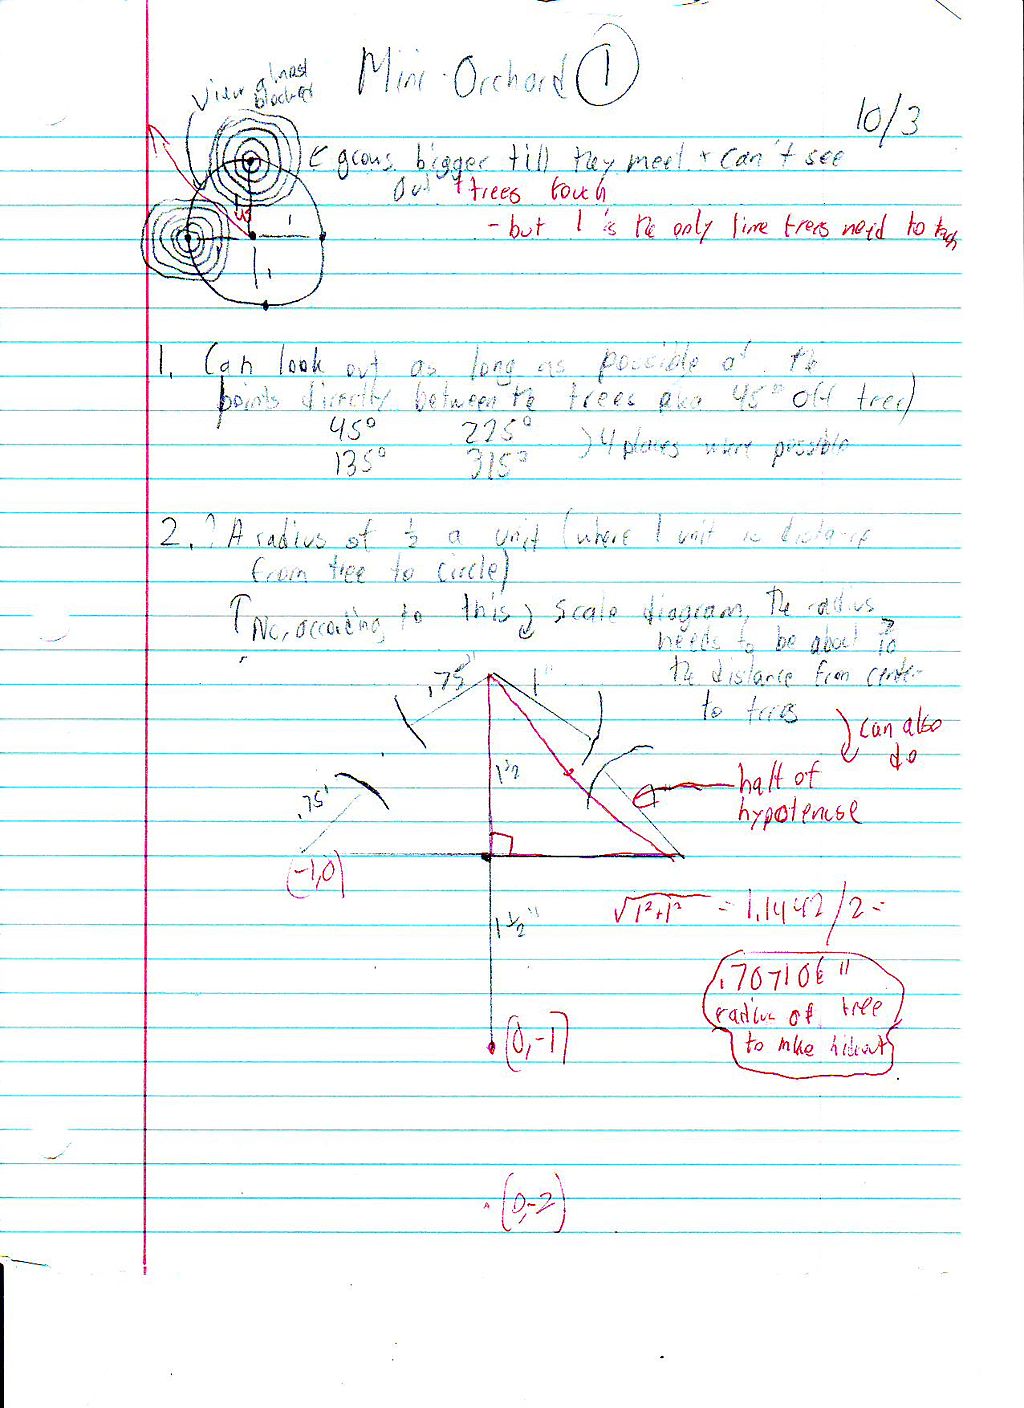 Mini-Orchard 1
10/3
View almost
blocked
← grows bigger till they meet + can't see
out ↑ trees touch
- but 1 is the only time trees need to touch
1
1
1. Can look out as long as possible at the
points directly between the trees aka 45° off tree)
45° 225° } 4 places where possible
135° 315°
2. ? A radius of ½ a unit (where 1 unit is distance
from tree to circle)
↑ No, according to this ↓ scale diagram, the radius
needs to be about
the distance from center
to trees
.75" 1"
can also
do
1½
half of
hypotenuse
.75"
(-1,0)
√1²+1² = 1.1442/2 =
1½"
.707106"
radius of tree
to make hideout
(0,-1)
(0,-2)